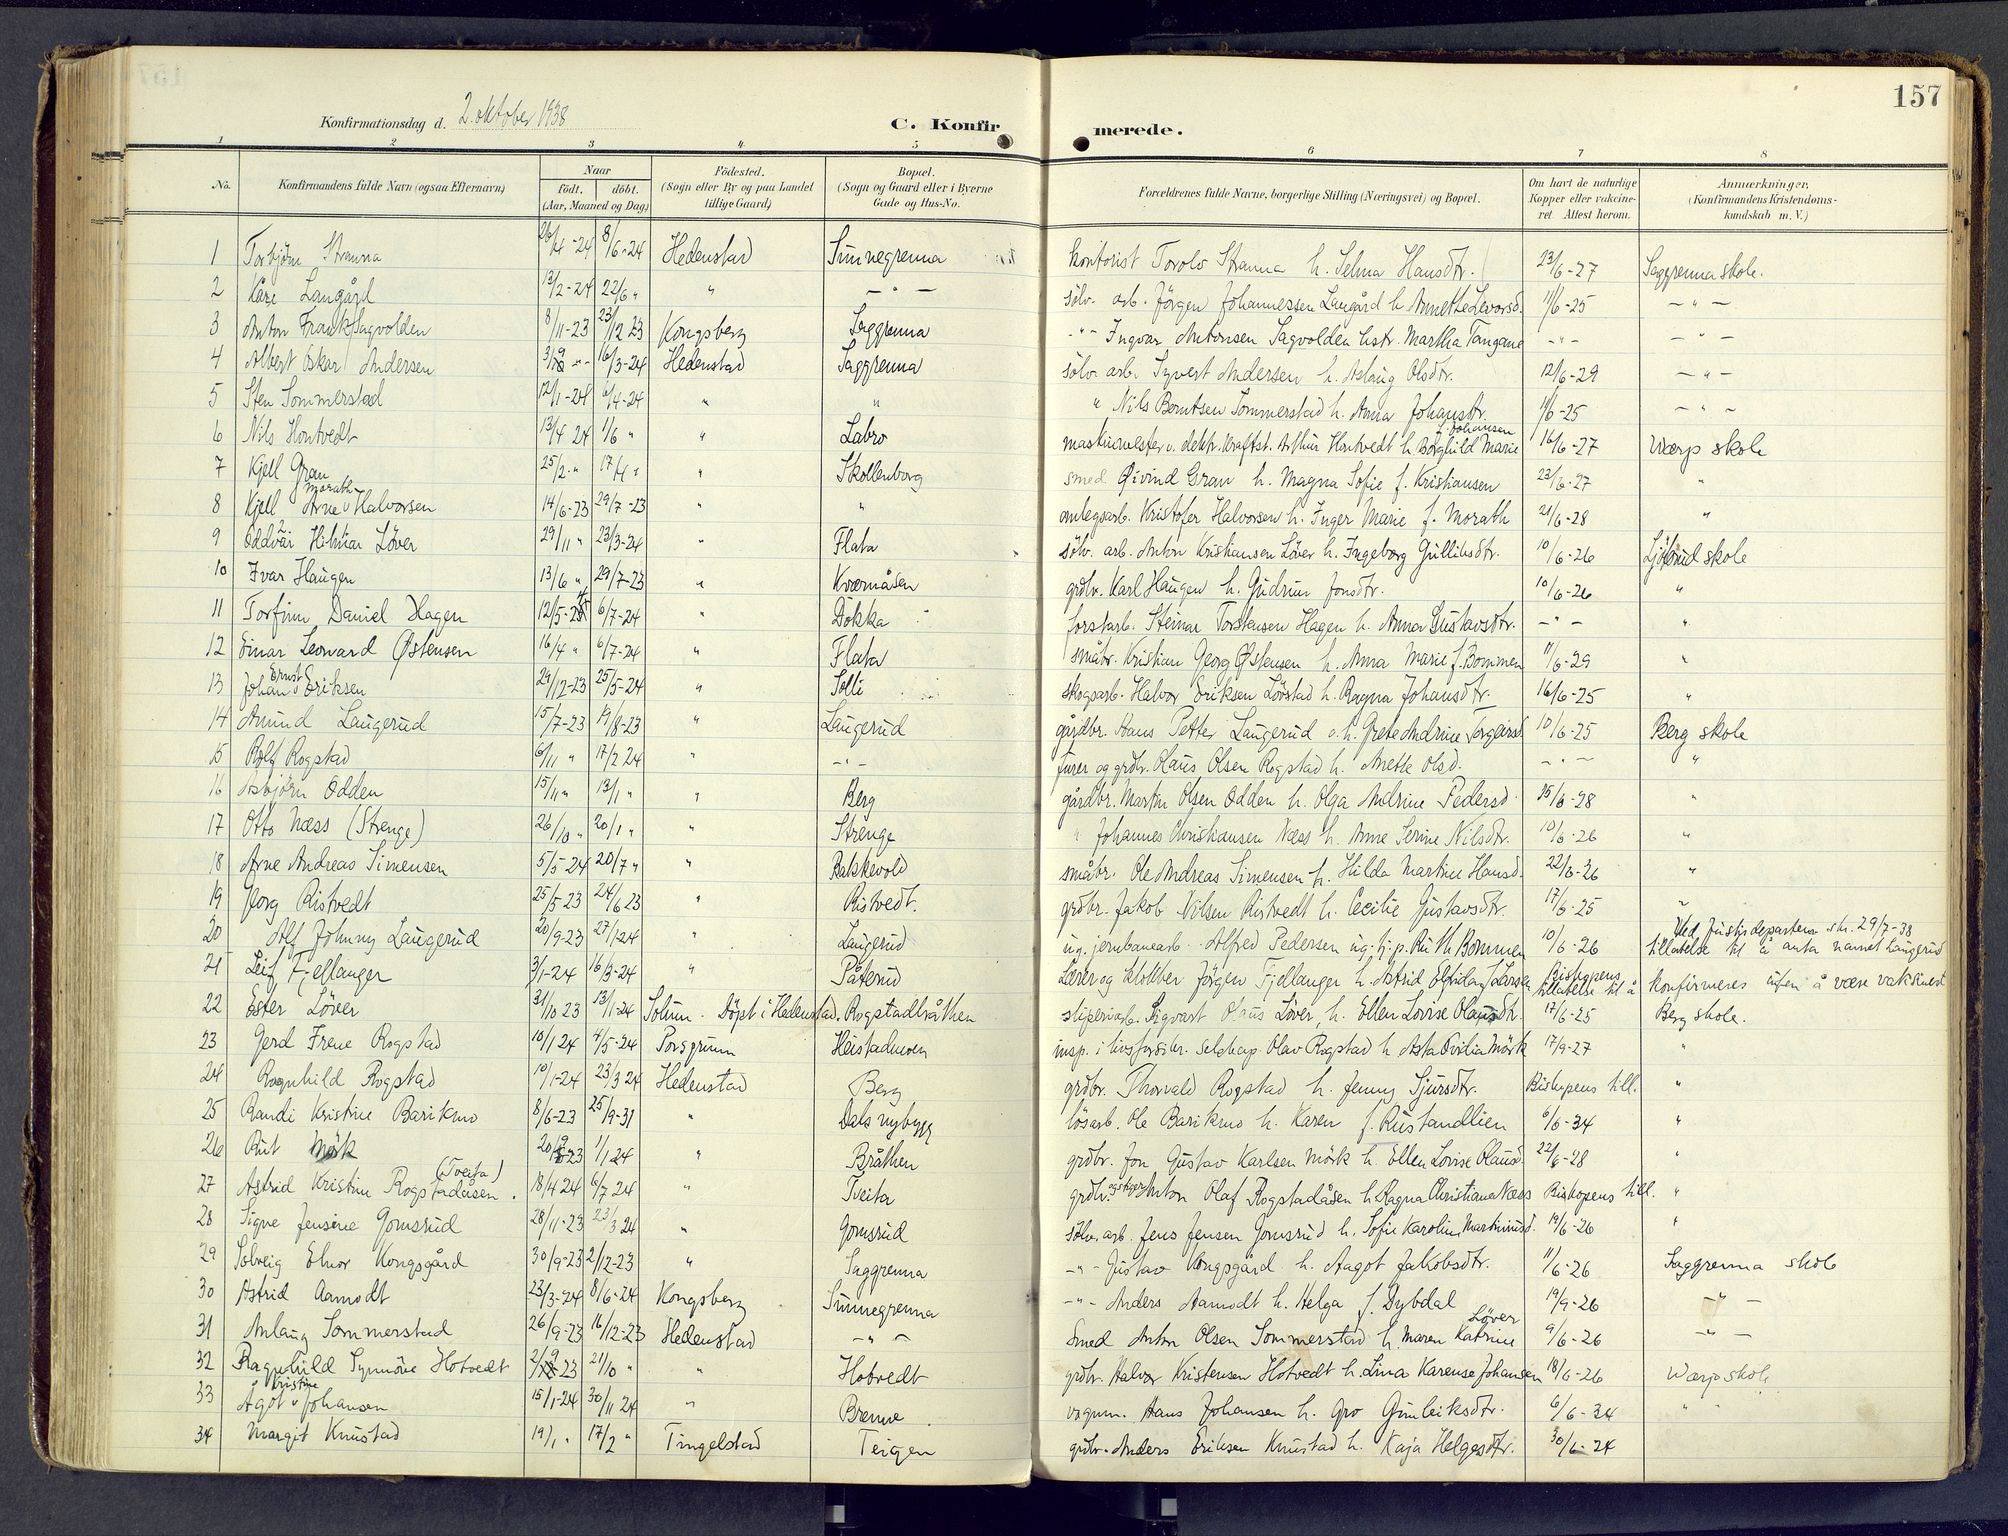 157
Konfirmationsdag d. 2. oktober 1938
C. Konfirmerede.
1 2 3 4 5 6 7 8
No. | Konfirmandens fulde Navn (ogsaa Efternavn) | Naar født. døbt. (Aar, Maaned og Dag) | Fødested. (Sogn eller By og paa Landet tillige Gaard) | Bopæl. (Sogn og Gaard eller i Byerne Gade og Hus-No. | Forældrenes fulde Navne, borgerlige Stilling (Næringsvei) og Bopæl. | Om havt de naturlige Kopper eller vakcineret Attest herom. | Anmærkninger. (Konfirmandens Kristendomskundskab m. V.)
1 Torbjørn Stranna 26/4-24 8/6-24 Hedenstad Sunnegrenna kontorist Torolv Stranna h. Selma Hansdtr. 23/6-27 Saggrenna skole.
2 Kåre Langård 13/2-24 22/6 " " - " - sølv. arb. Jörgen Johannessen Langård h Annette Levorsd. 11/6-25 - " -
3 Anton Frank Sagvolden 8/11-23 23/12 23 Kongsberg Saggrenna - " - Ingvar Antonsen Sagvolden hstr. Martha Tangane - " - - " -
4 Albert Oskar Andersen 3/9 " - 16/3-24 Hedenstad Saggrenna sølv. arb. Syvert Andersen h. Aslaug Olsdtr. 12/6-29 - " -
5 Sten Sommerstad 12/1-24 6/4-24 " " " Nils Berntsen Sommerstad h. Anna Johansdtr. 11/6-25 - " -
6 Nils Hontvedt 13/4 24 1/6 " " Labro maskinmester v. elektr. kraftst. Arthur Hontvedt h Borghild Marie f. Johansen 16/6-27 Wærp skole
7 Kjell Gran 25/2 " 17/4 " " Skollenborg smed Øivind Gran h. Magna Sofie f. Kristiansen 23/6-27 "
8 Kjell Arne Morath Halvorsen 14/6-23 29/7-23 " " anlegsarb. Kristofer Halvorsen h. Inger Marie f. Morath 21/6-28 "
9 Oddvar Hilmar Løver 29/11 " 23/3-24 " Flata sølv. arb. Anton Kristiansen Løver h. Ingeborg Gulliksdtr. 10/6-26 Ljøterud skole
10 Ivar Haugen 13/6 " 29/7-23 " Kværnåsen grdbr. Karl Haugen h. Gudrun Jonsdtr. 10/6-26 "
11 Torfinn Daniel Hagen 12/5-24 6/7-24 " Dokka forstarb. Steinar Torstensen Hagen h. Anna Gustavsdtr. - " - "
12 Einar Leonard Østensen 16/4 " 6/7-24 " Flata småbr. Kristian Georg Østensen h. Anna Marie f. Bommen 11/6-29 "
13 Johan Ernst Eriksen 29/12-23 25/5-24 " Solli skogsarb. Halvor Eriksen Lövstad h. Ragna Johansdtr. 16/6-25 "
14 Amund Laugerud 15/7-23 19/8-23 " Laugerud gårdbr. Hans Petter Laugerud o. h. Grete Andrine Torgeirsd. 10/6-25 Berg skole
15 Rolf Rogstad 6/11 " 17/2 24 " - " - furer og grdbr. Olaus Olsen Rogstad h. Anette Olsd. - " - "
16 Asbjørn Odden 15/11 " 13/1 " " Berg gårdbr. Martin Olsen Odden h. Olga Andrine Pedersd. 25/6-28 "
17 Otto Næss (Strenge) 26/10 " 20/1 " " Strenge " Johannes Christiansen Næss h. Anne Serine Nilsdtr. 10/6-26 "
18 Arne Andreas Simensen 5/5-24 20/7 " " Bakkevold småbr. Ole Andreas Simensen h. Hilda Martine Hansd. 22/6-36 "
19 Georg Ristvedt 25/5 23 24/6 23 " Ristvedt. grdbr. Jakob Nilsen Ristvedt h. Cecilie Gustavsdtr. 17/6-25 "
20 Alf Johnny Laugerud 20/9-23 27/1-24 " Laugerud ug. jernbanearb. Alfred Pedersen ug. tj. p. Ruth Bommen 10/6-26 Ved Justisdepartem. skr. 29/7-38 tillatelse til å anta navnet Laugerud
21 Leif Fjellanger 3/1-24 16/3-24 " Påterud Lærer og klokker Jørgen Fjellanger h. Astrid f. Larsen Biskopens tillatelse til å konfirmeres uten å være vaksinert
22 Ester Løver 31/10 23 13/1-24 Solum. Döpt i Hedenstad. Rogstadbråthen stiperarb. Sigvart Olaus Løver, h. Ellen Lovise Olausdtr. 17/6-25 Berg skole.
23 Gerd Irene Rogstad 10/1 24 4/5-24 Porsgrunn Heistadmoen insp. i livsforsikr. selskap Olav Rogstad h Asta Ovilia Mörk 17/9-27 "
24 Ragnhild Rogstad 10/1-24 23/3 24 Hedenstad Berg grdbr. Thorvald Rogstad h. Jenny Sjursdtr. Biskopens till. "
25 Randi Kristine Barikmo 8/6-23 25/9-31 " Dals nybygg løsarb. Ole Barikmo h. Karen f. Rustandlien 6/6-34 "
26 Rut Mörk 20/9-23 1/1 24 " Bråthen grdbr. Jon Gustav Karlsen Mörk h. Ellen Lovise Olausd. 22/6-28 "
27 Astrid Kristine Rogstadåsen (Tveita). 18/4 24 6/7 24 " Tveita grdbr. Anton Olaf Rogstadåsen h. Ragna Christiane Næss Biskopens till. "
28 Signe Jensine Gomsrud 28/11-23 23/3 24 " Gomsrud sølv. arb. Jens Jensen Gomsrud h. Sofie Karoline Martinusd. 19/6-26 "
29 Solveig Elnor Kongsgård 30/9-23 2/12-23 " Saggrenna - " - Gustav Kongsgård h. Aagot Jakobsdtr. 11/6-26 Saggrenna skole
30 Astrid Aamodt 23/3-24 8/6-24 Kongsberg Sunnegrenna - " - Anders Aamodt h. Helga f. Dybdal 19/9-26 - " -
31 Anlaug Sommerstad 26/9-23 16/12-23 Hedenstad - " - Smed Anton Olsen Sommerstad h. Maren Katrine Løver 9/6-26 - " -
32 Ragnhild Synnöve Hotvedt 2/9 23 21/10 " " Hotvedt grdbr. Halvor Kristensen Hotvedt h. Lina Karense Johansen 18/6-26 Wærp skole
33 Ågot Kristine Johansen 15/1-24 30/11 24 " Brenne vognm. Hans Johansen h. Gro Gunleiksdtr. 6/6-34 "
34 Margit Knustad 19/1 " 17/2 " Tingelstad Teigen grdbr. Anders Eriksen Knustad h. Kaja Helgesdtr. 30/6-24